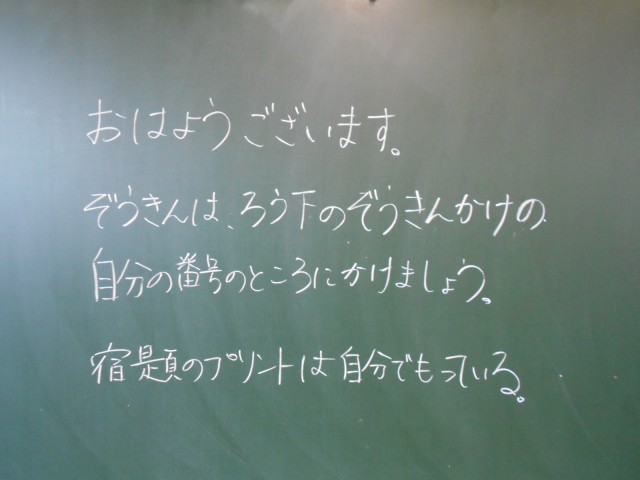 おはようございます。
ぞうきんは、ろう下のぞうきんかけの
自分の番号のところにかけましょう。
宿題のプリントは自分でもっている。